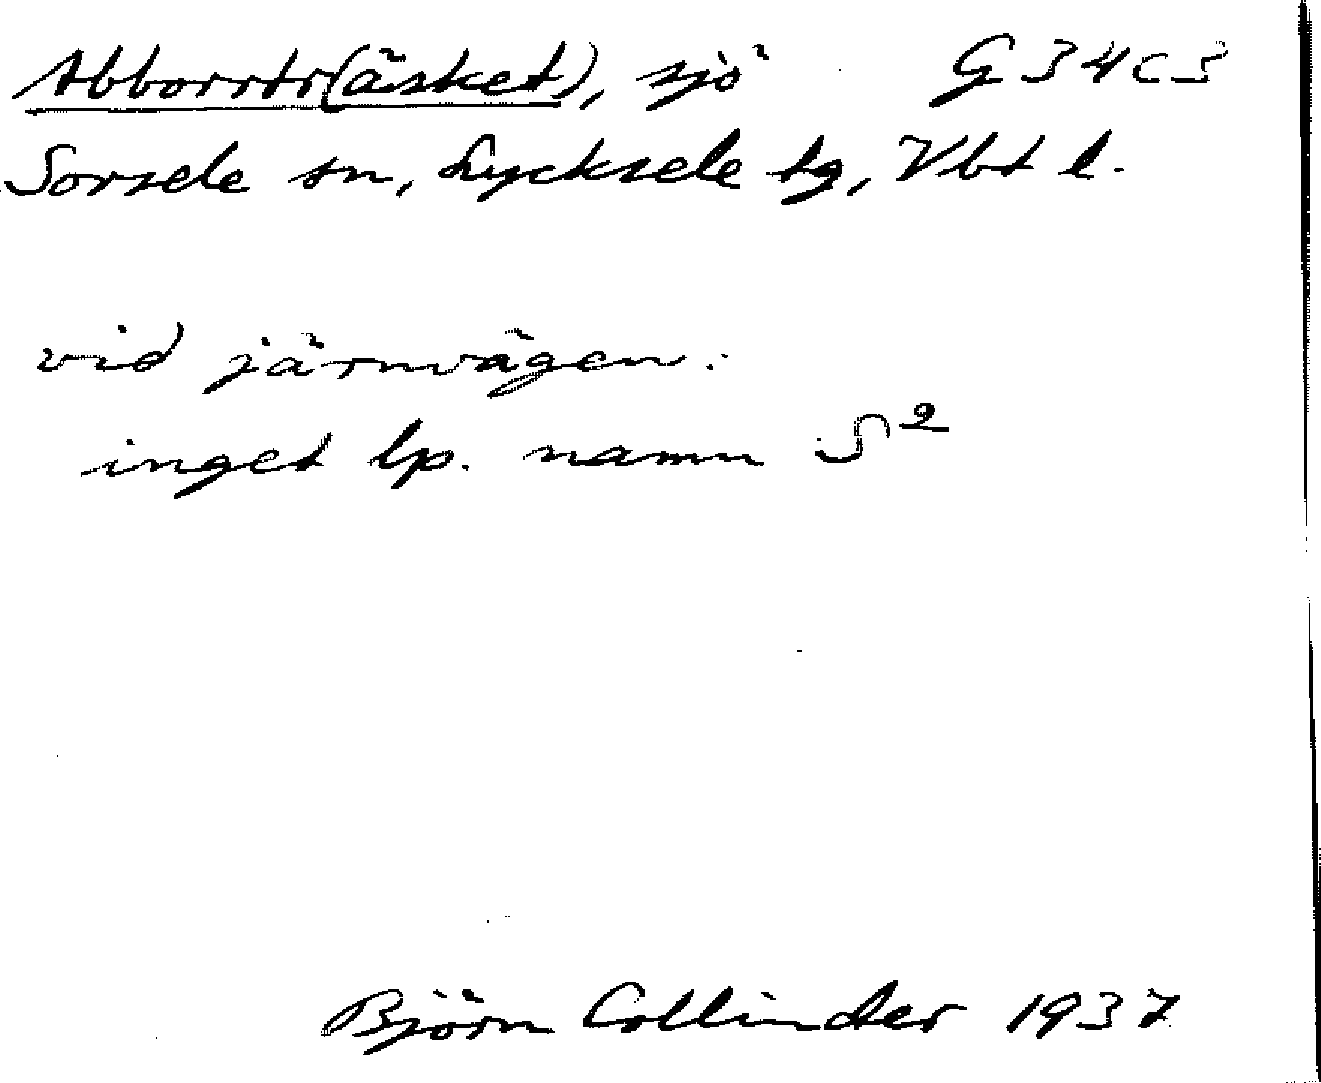 Abborrtr(äsket), sjö G 34 c 3
Sorsele sn, Lycksele tg, Vbt l.
vid järnvägen.
inget lp. namn S²
Björn Collinder 1937